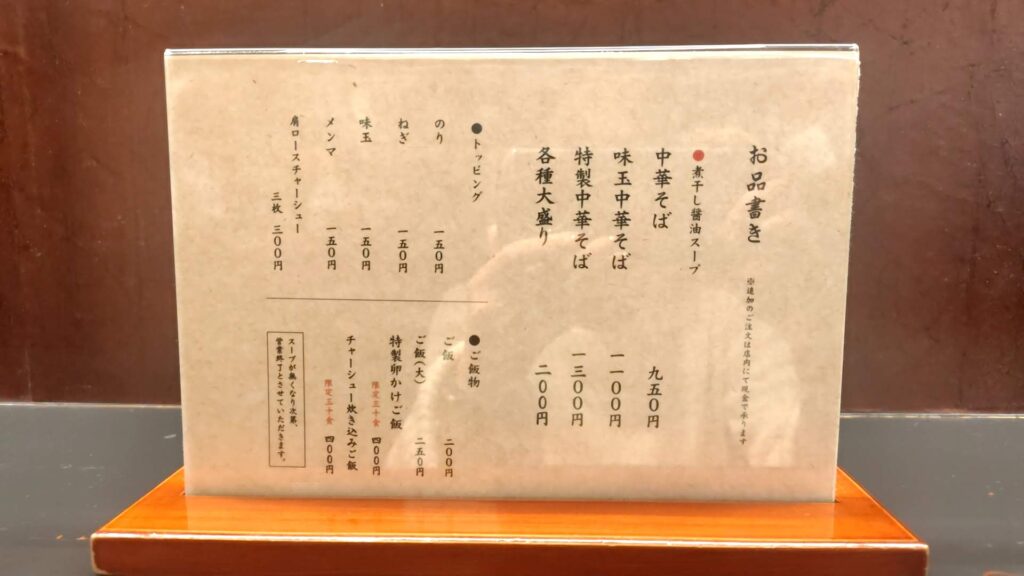 お品書き
※追加のご注文は店内にて現金で承ります
●煮干し醤油スープ
中華そば 九五〇円
味玉中華そば 一一〇〇円
特製中華そば 一三〇〇円
各種大盛り 二〇〇円
●トッピング
のり 一五〇円
ねぎ 一五〇円
味玉 一五〇円
メンマ 一五〇円
肩ロースチャーシュー
三枚 三〇〇円
●ご飯物
ご飯 二〇〇円
ご飯(大) 二五〇円
特製卵かけご飯
限定三十食 四〇〇円
チャーシュー炊き込みご飯
限定三十食 四〇〇円
スープが無くなり次第、
営業終了とさせていただきます。